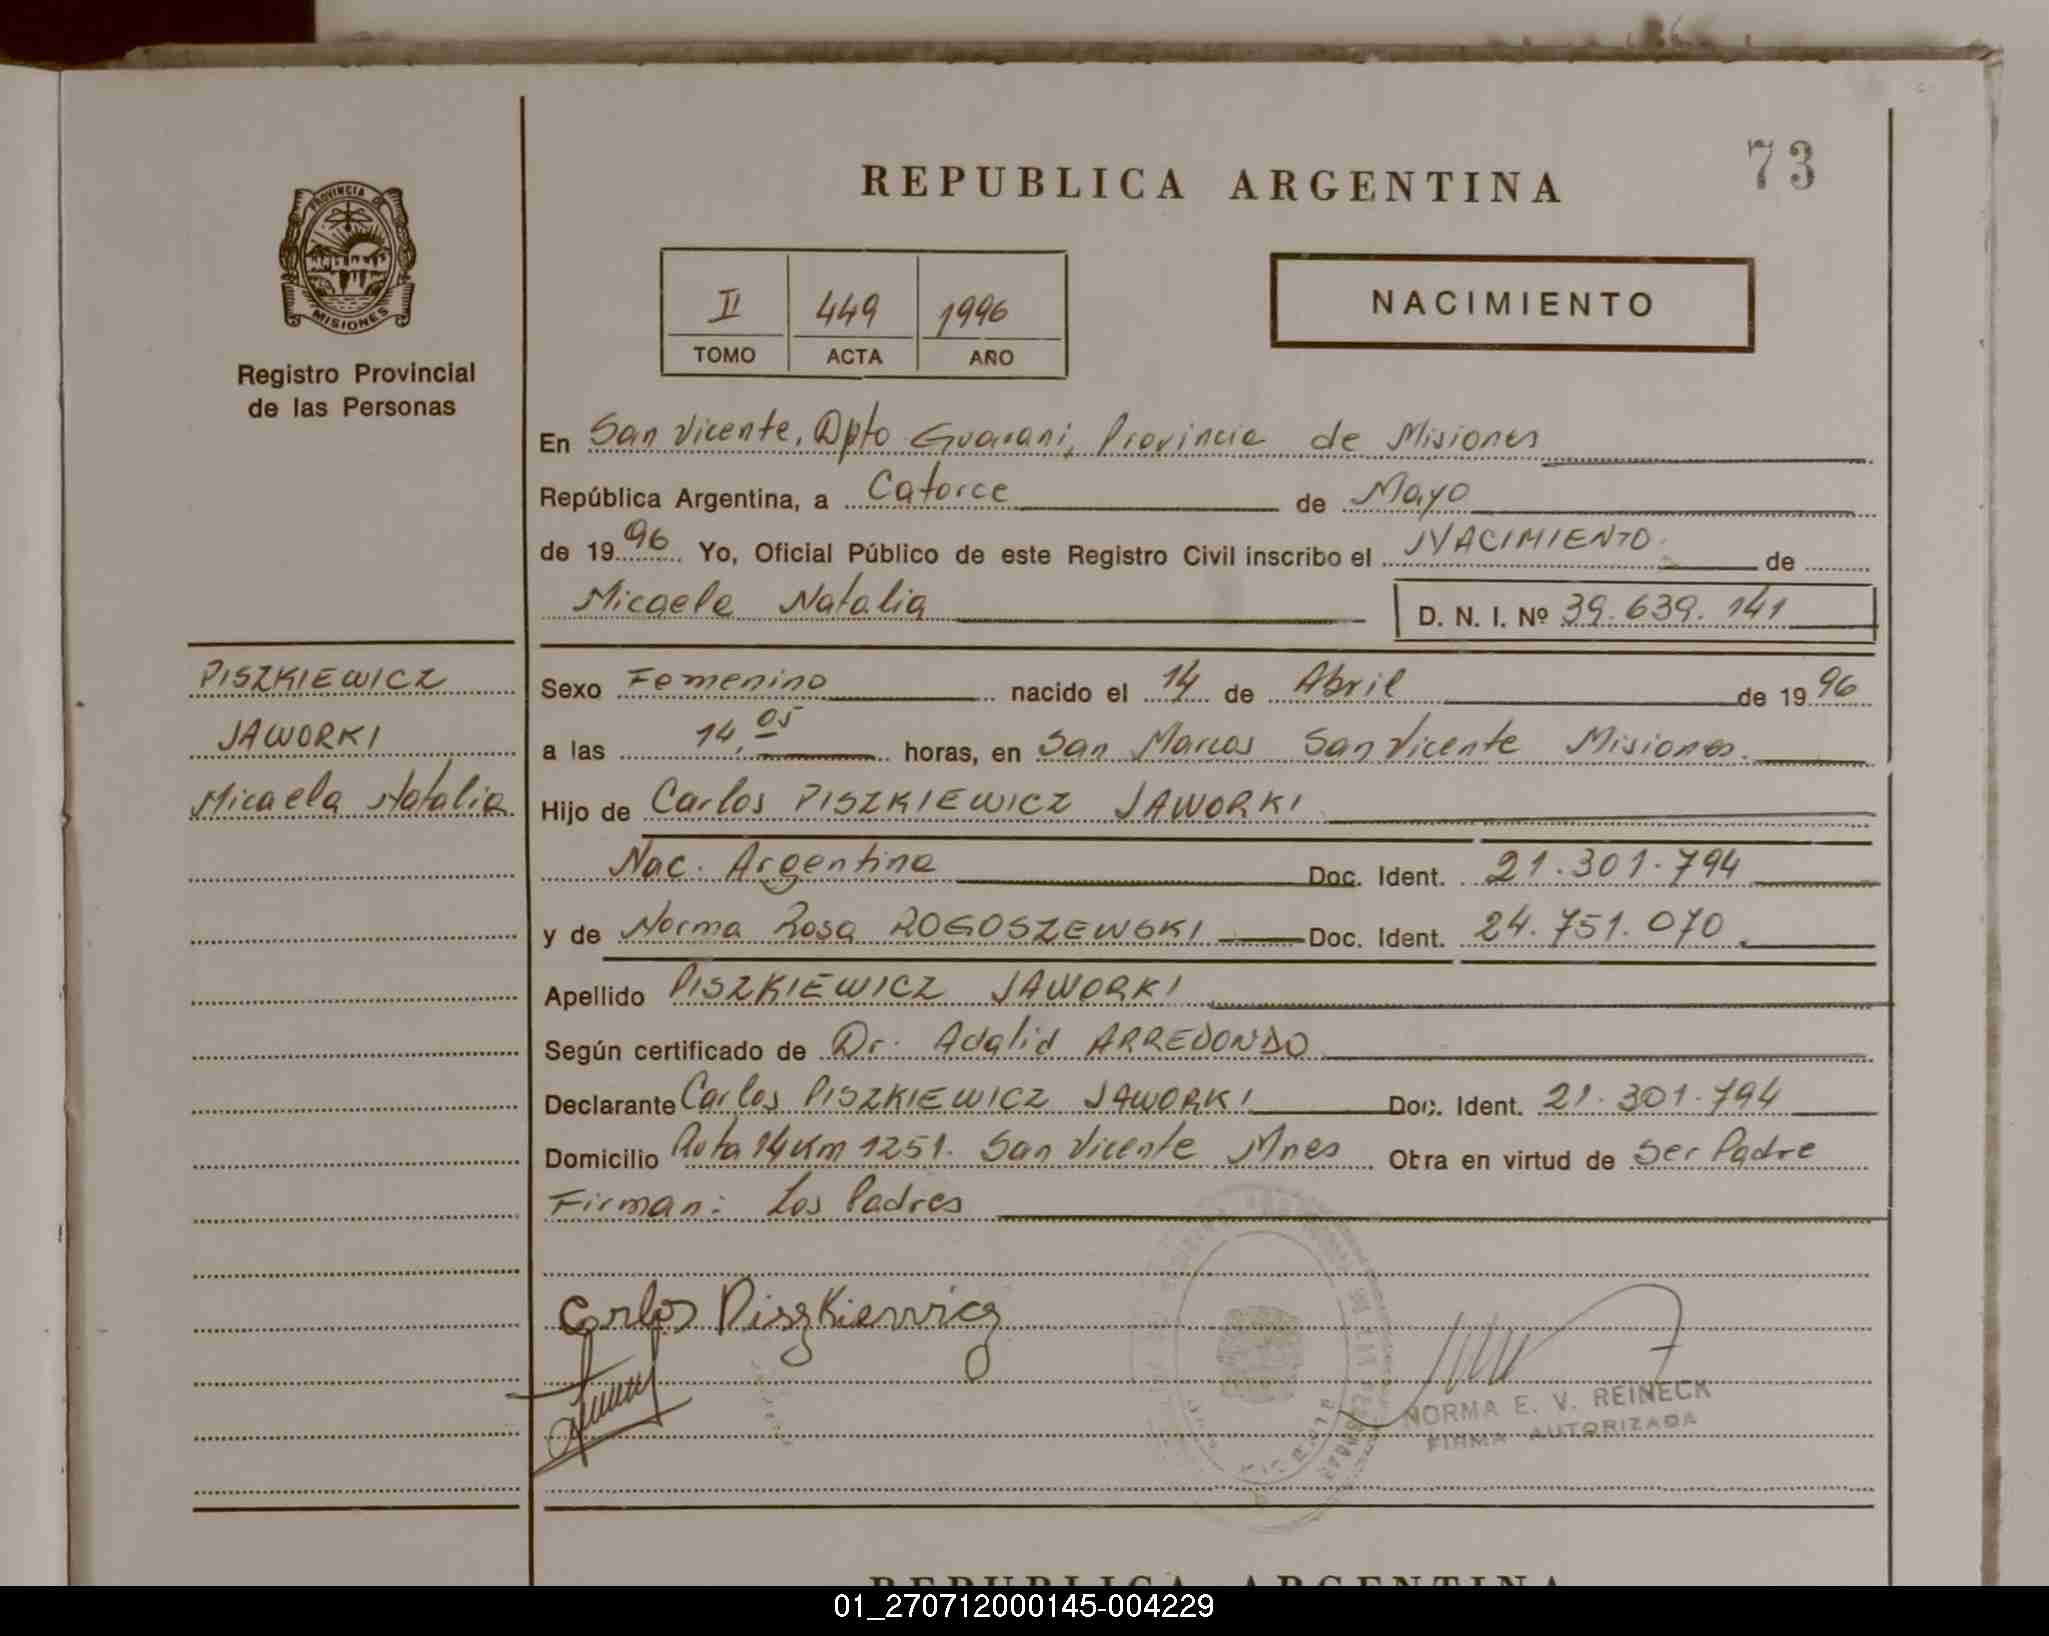 REPUBLICA ARGENTINA
73
PROVINCIA DE
MISIONES
Registro Provincial
de las Personas
II 449 1996
TOMO ACTA AÑO
NACIMIENTO
En San Vicente, Dpto Guarani, Provincia de Misiones
República Argentina, a Catorce de Mayo
de 1996 Yo, Oficial Público de este Registro Civil inscribo el NACIMIENTO de
Micaela Natalia D. N. I. Nº 39.639.141
PISZKIEWICZ
JAWORKI
Micaela Natalia
Sexo Femenino nacido el 14 de Abril de 1996
a las 14,05 horas, en San Marcos San Vicente Misiones.
Hijo de Carlos PISZKIEWICZ JAWORKI
Nac. Argentina Doc. Ident. 21.301.794
y de Norma Rosa ROGOSZEWSKI Doc. Ident. 24.751.070
Apellido PISZKIEWICZ JAWORKI
Según certificado de Dr. Adalid ARREDONDO
Declarante Carlos PISZKIEWICZ JAWORKI Doc. Ident. 21.301.794
Domicilio Ruta 14 Km 1251. San Vicente Mnes Obra en virtud de Ser Padre
Firman: Los Padres
Carlos Piszkiewicz
NORMA E. V. REINECK
FIRMA AUTORIZADA
REPUBLICA ARGENTINA
01_270712000145-004229